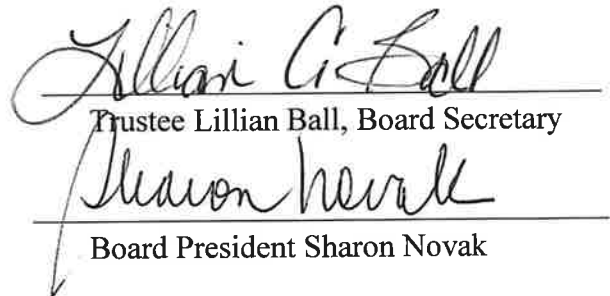 Lillian A Ball
Trustee Lillian Ball, Board Secretary
Sharon Novak
Board President Sharon Novak